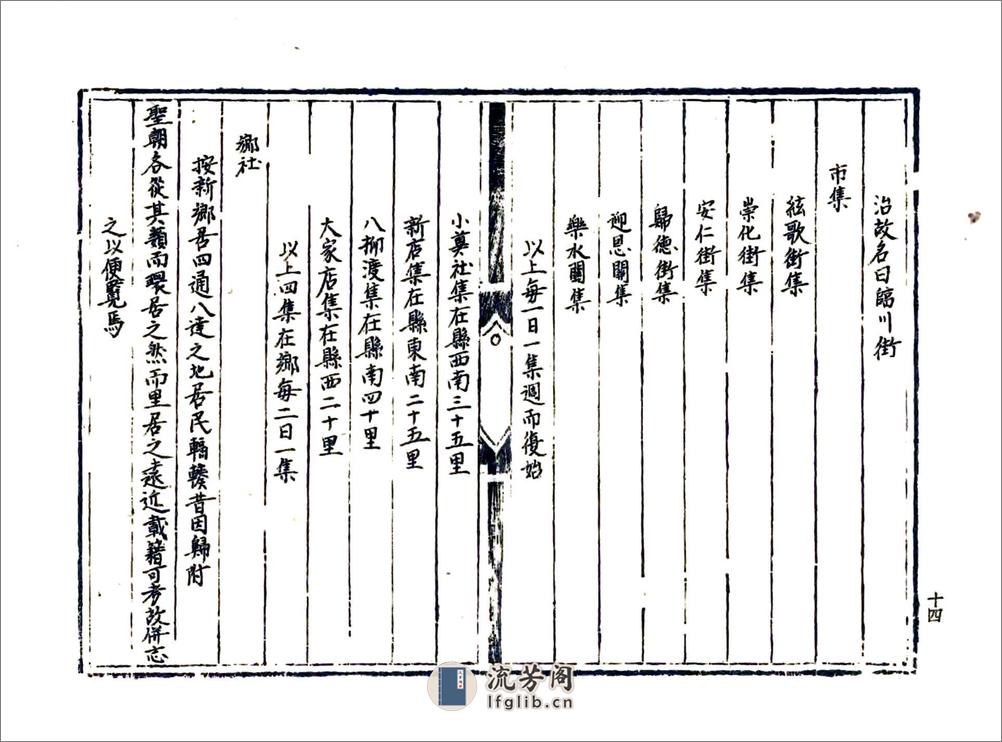 治故名曰臨川街
市集
絃歌街集
崇化街集
安仁街集
歸德街集
迎恩關集
樂水關集
以上每一日一集週而復始
小莫社集在縣西南三十五里
新店集在縣東南二十五里
八柳渡集在縣南四十里
大家店集在縣西二十里
以上四集在鄉每二日一集
鄉社
按新鄉居四通八達之地居民輻輳昔因歸附
聖朝各從其類而環居之然而里居之遠近載籍可考故併志
之以便覽焉
十四
流芳阁
lfglib.cn